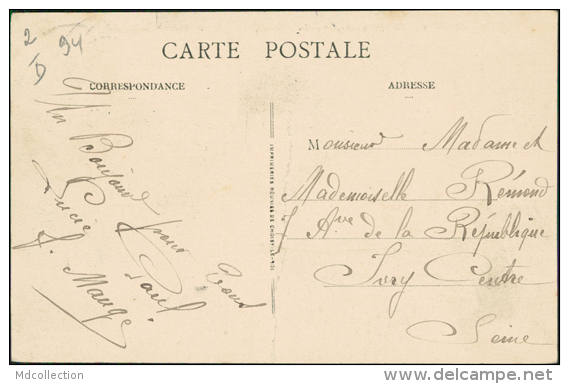 2
D
94
CARTE POSTALE
CORRESPONDANCE
ADRESSE
Un Bonjour pour tous
Lucie Paul
J. Mauge
Monsieur Madame et
Mademoiselle Rémond
7 Ave de la République
Ivry Centre
Seine
IMPRIMERIES RÉUNIES DE
Mdcollection
www.delcampe.net